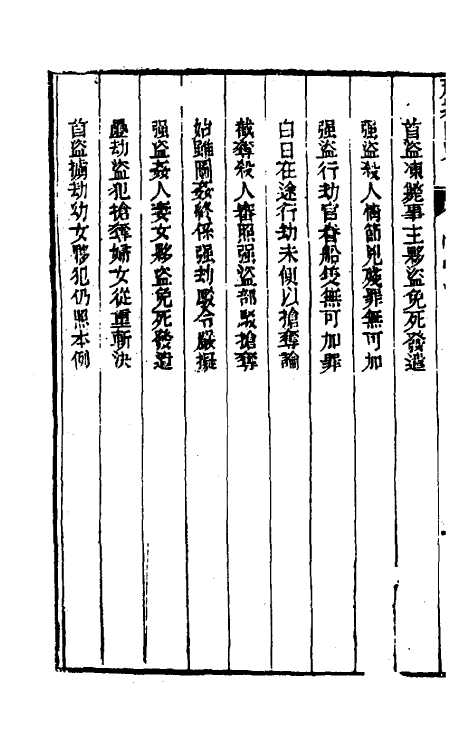 首盜凍斃事主夥盜免死發遣
強盜殺人情節兇殘罪無可加
強盜行劫官眷船隻無可加罪
白日在途行劫未便以搶奪論
截奪殺人審照強盜部駁搶奪
始雖圖姦終係強劫駁令嚴擬
強盜姦人妻女夥盜免死發遣
疊劫盜犯搶奪婦女從重斬決
首盜擄劫幼女夥犯仍照本例